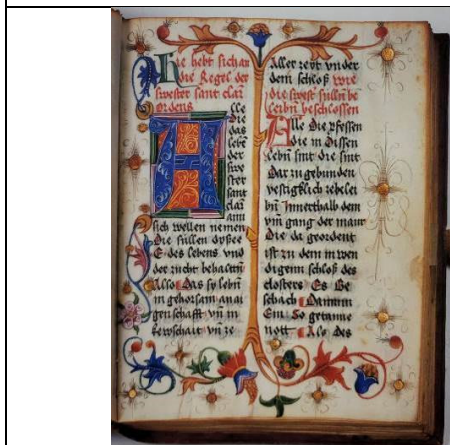 Hie hebt sich an
die Regel der
swester sant clarn
ordens
Alle
die
das
lebē
der
swe
ster
sant
claē
ann
sich wellen nemen
Die sullen dyse
des lebens vnd
der zucht behaltn
Also Das sy lebn
in gehorsam an ai
genschafft vn in
kewschait vn ze
Aller zeyt vnder
dem schloß wie
die swest sulln be
leibn beschlossen
Alle die pfessen
die in dissen
lebn sint die sint
Dar zu gebunden
vestigklich zebelei
bn Innerthalb dem
vm gang der maur
Die da geordent
ist zu dem inwen
digenn schloß des
closters Es Be
schach Darumm
Ein So getanne
nott Als des